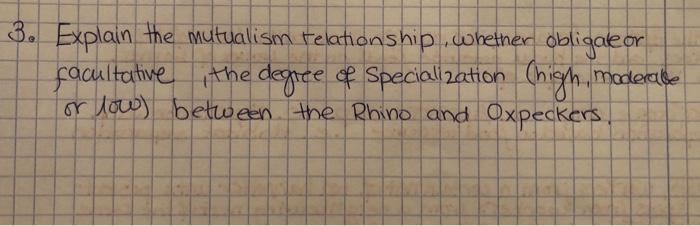 3. Explain the mutualism relationship, whether obligate or
facultative, the degree of Specialization (high, moderate
or low) between the Rhino and Oxpeckers.